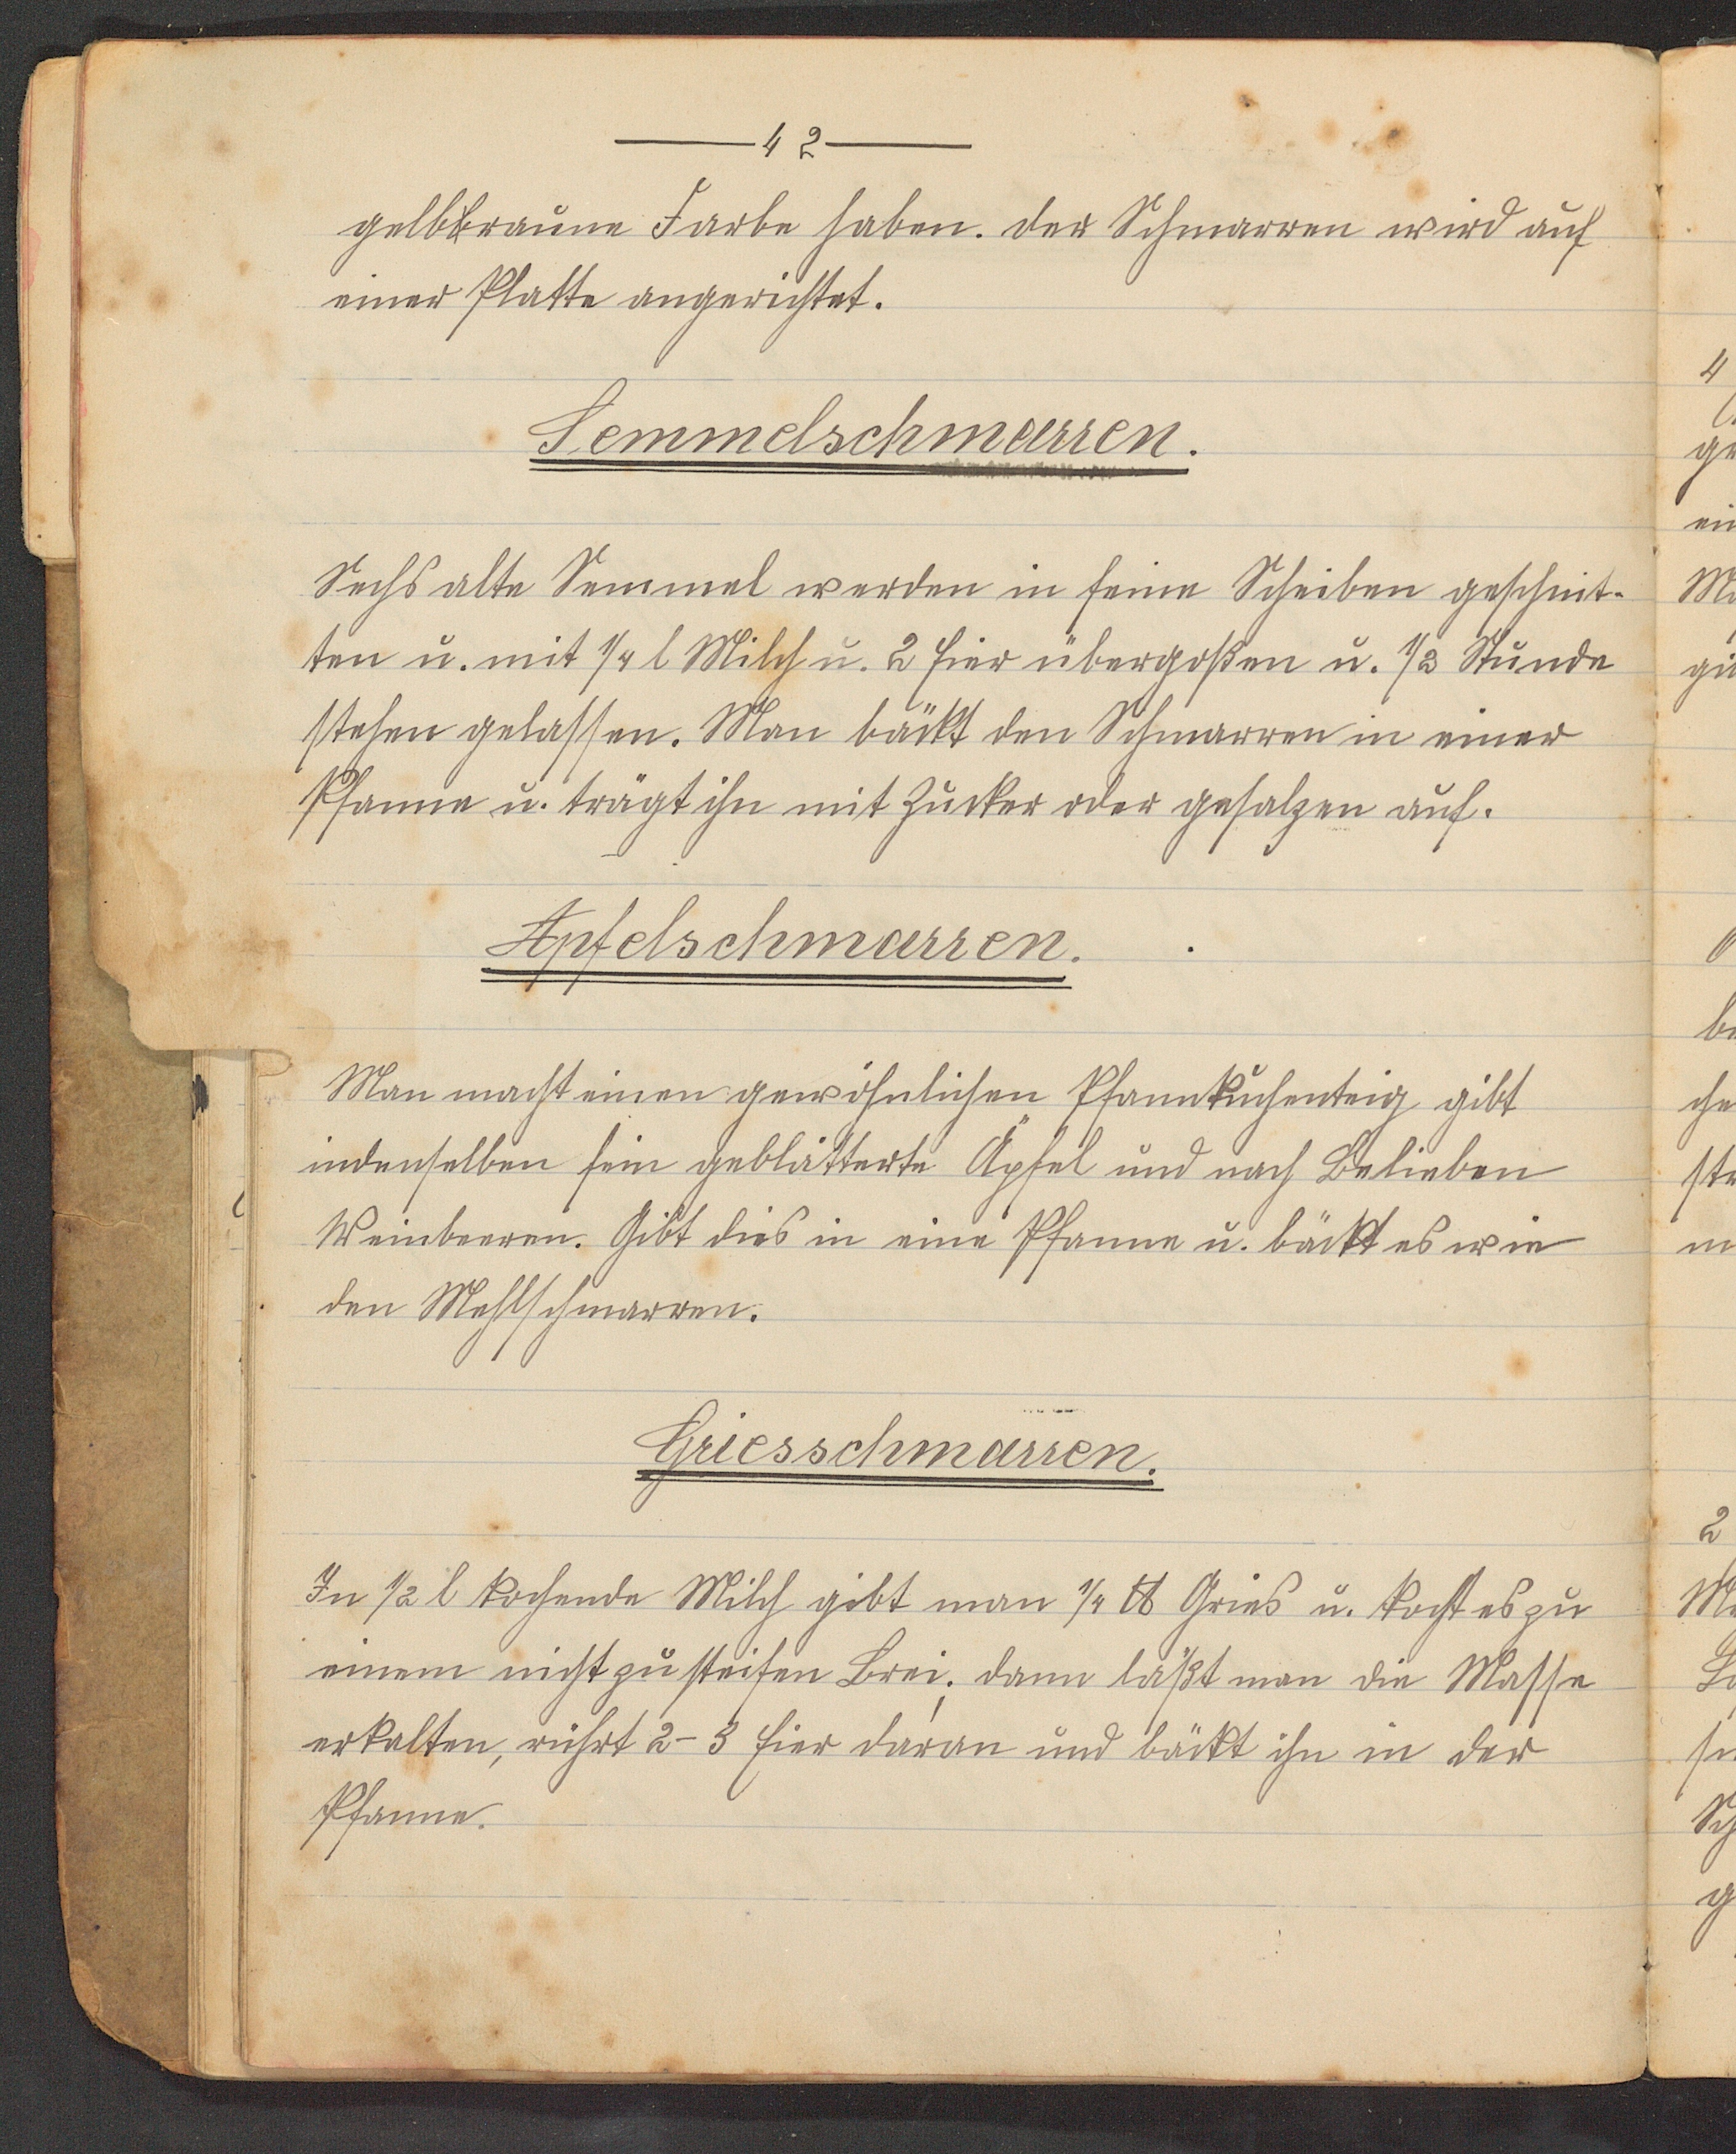 42
gelbbraune Farbe haben. Der Schmarren wird auf
einer Platte angerichtet.
Semmelschmarren.
Sechs alte Semmel werden in feine Scheiben geschnit-
ten u. mit 1/4 l Milch u. 2 Eier übergoßen u. 1/2 Stunde
stehen gelassen. Man bäckt den Schmarren in einer
Pfanne u. trägt ihn mit Zucker oder gesalzen auf.
Apfelschmarren.
Man macht einen gewöhnlichen Pfannkuchenteig gibt
indenselben fein geblätterte Äpfel und nach Belieben
Weinbeeren. Gibt dies in eine Pfanne u. bäckt es wie
den Mehlschmarren.
Griesschmarren.
In 1/2 l kochende Milch gibt man 1/4 ℔ Gries u. kocht es zu
einem nicht zu steifen Brei; dann läßt man die Masse
erkalten, rührt 2-3 Eier daran und bäckt ihn in der
Pfanne.